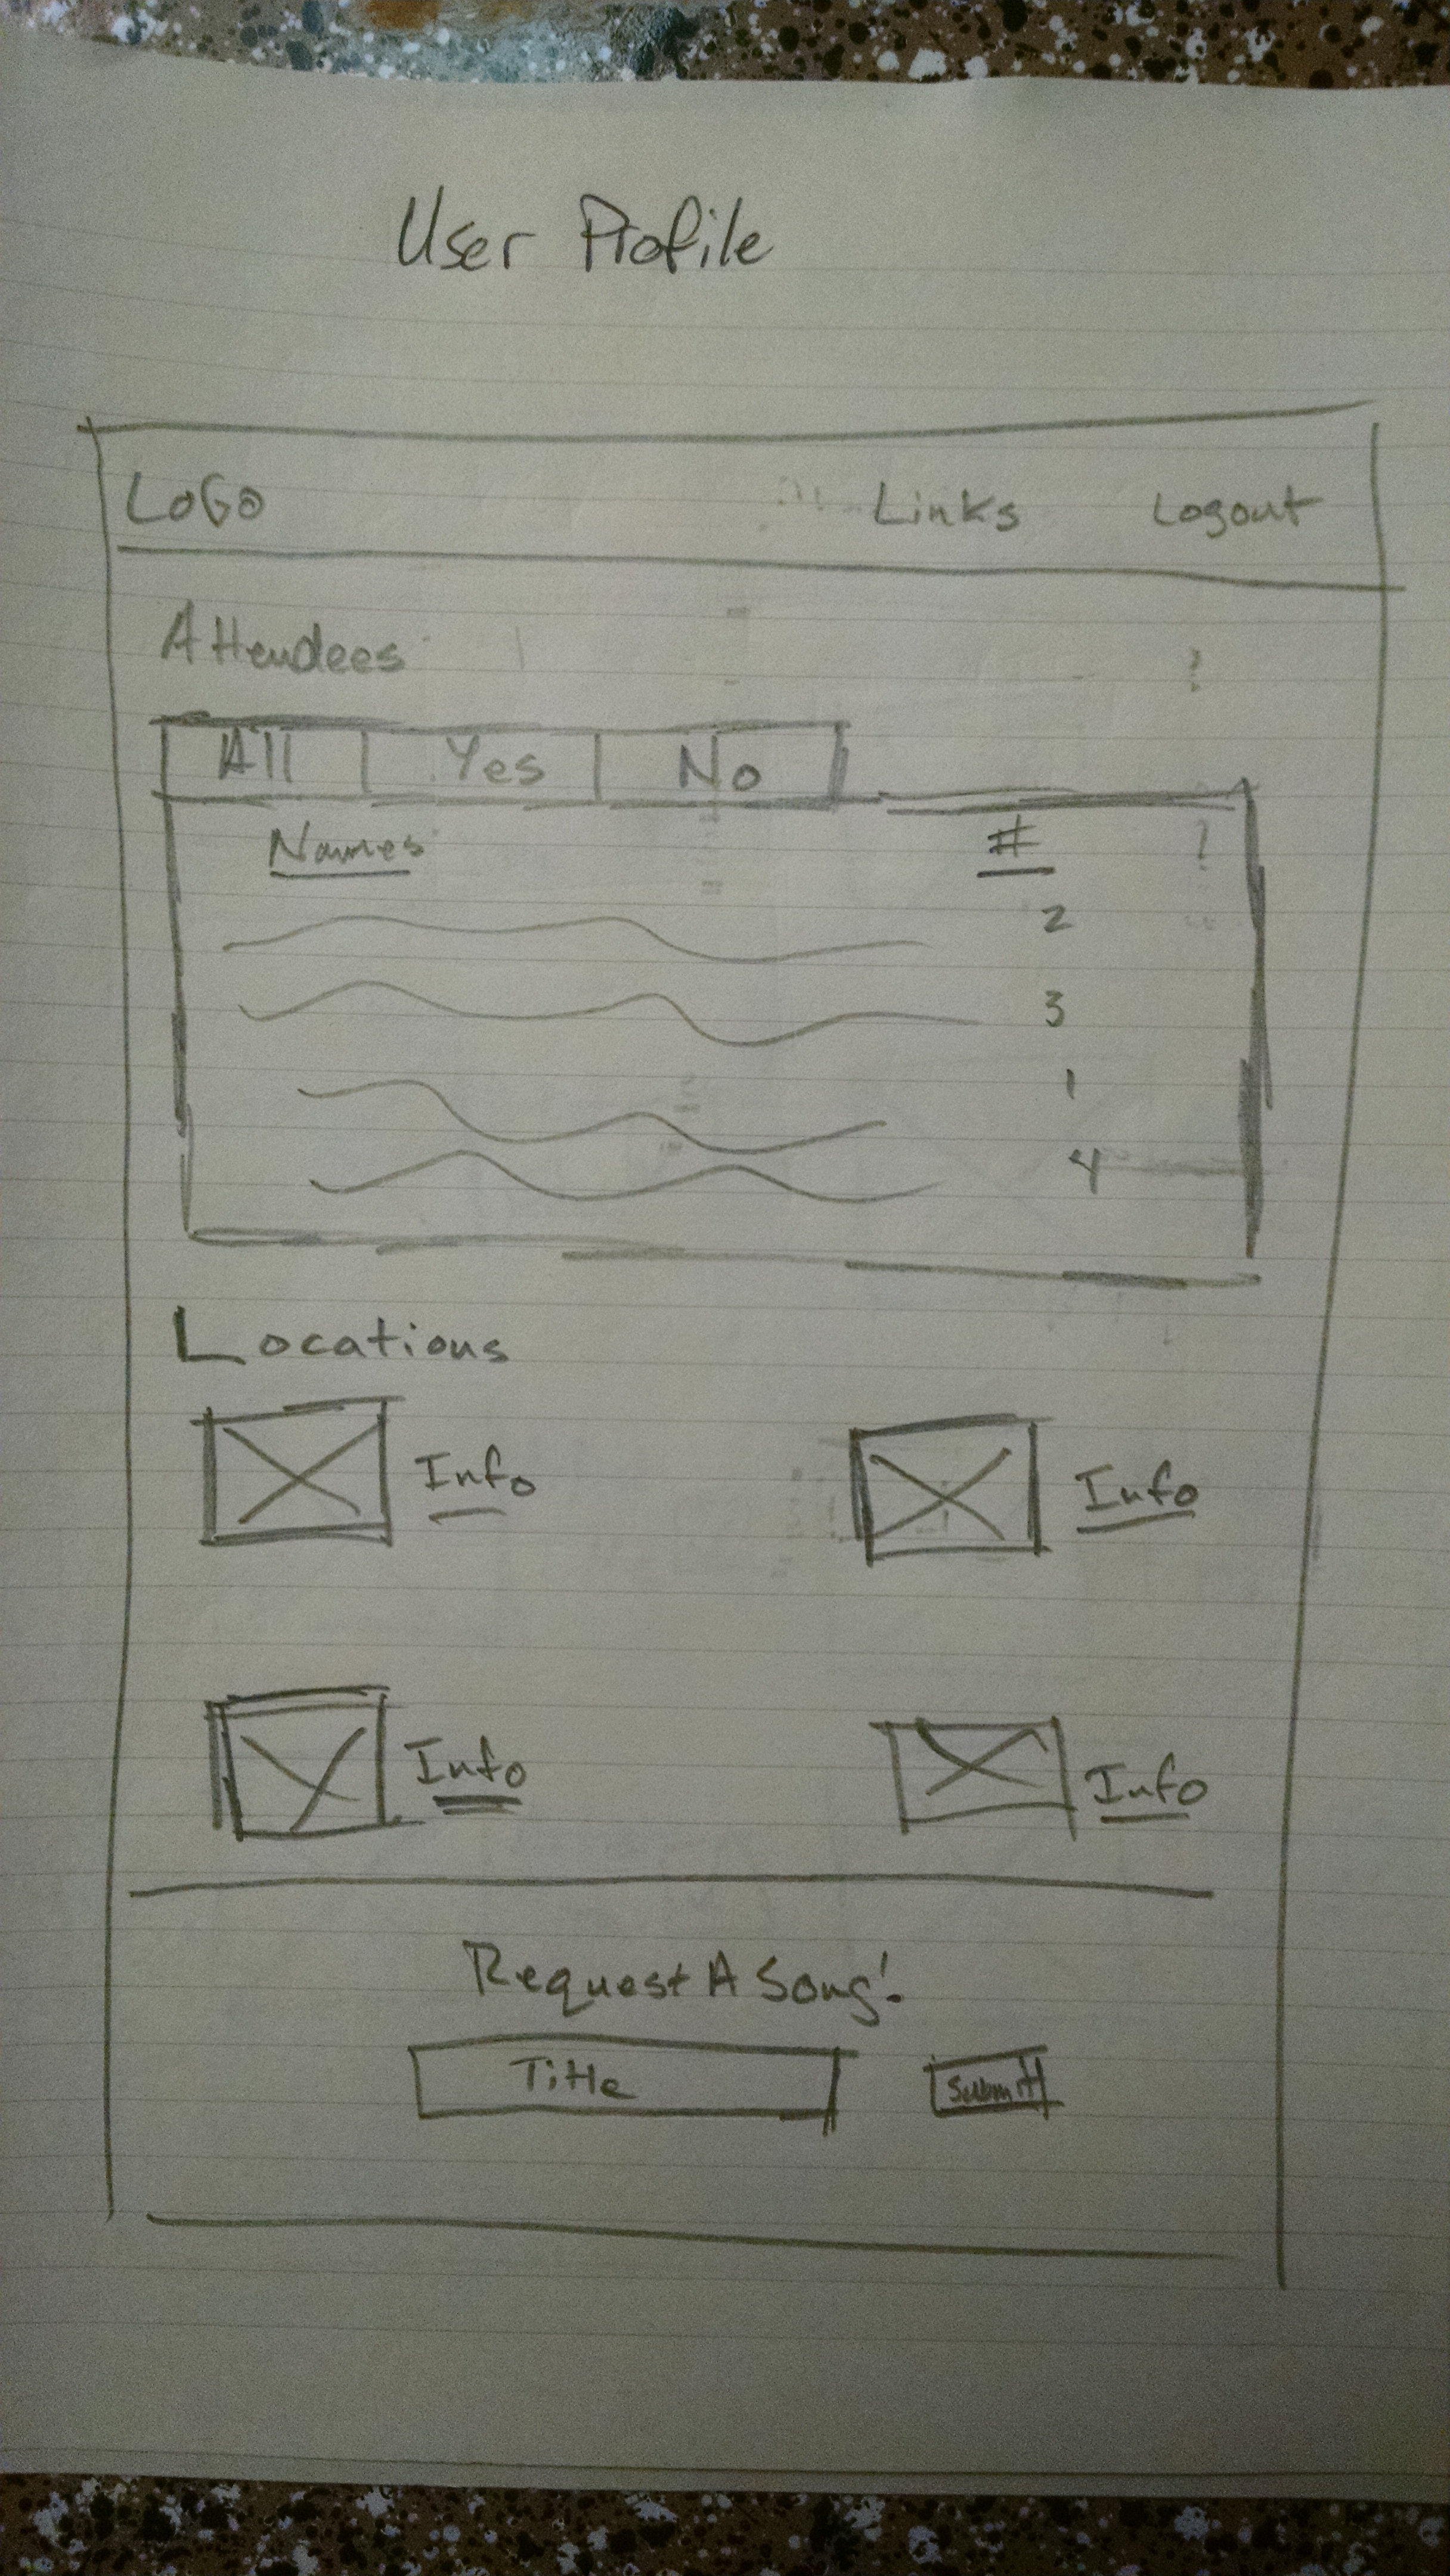 User Profile
LoGo Links Logout
Attendees
All Yes No
Names #
2
3
1
4
Locations
Info Info
Info Info
Request A Song!
Title Submit